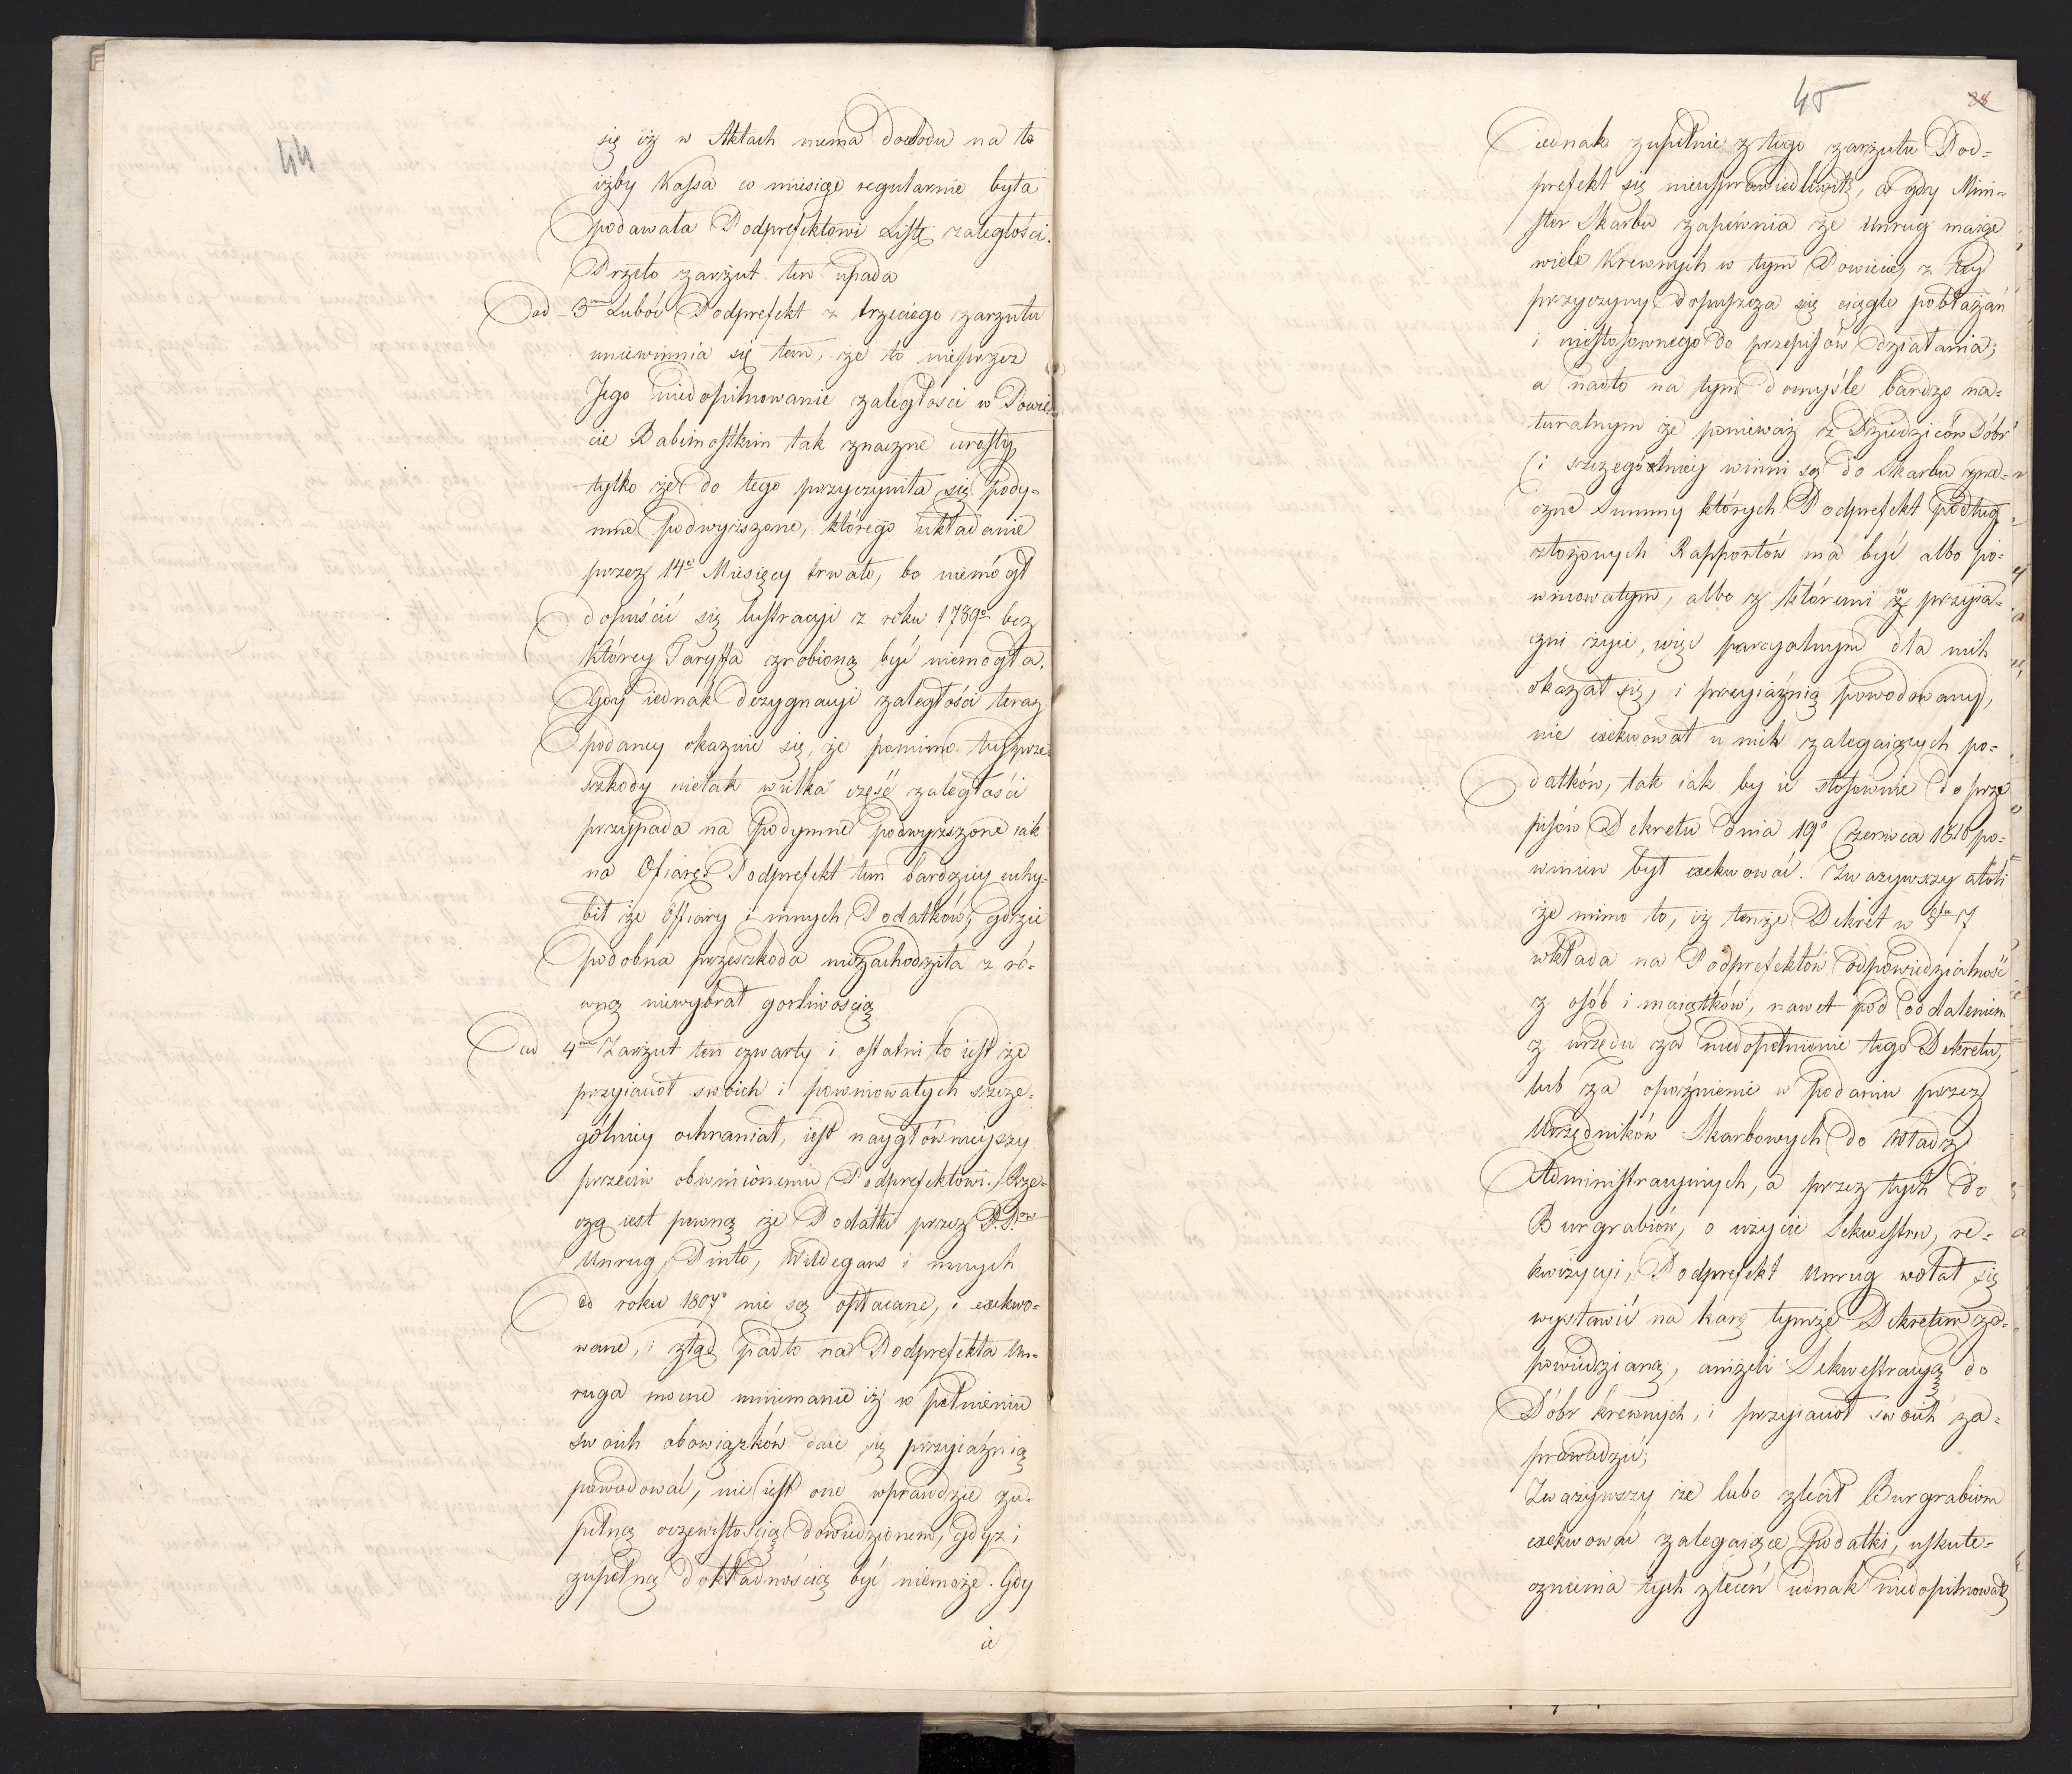 44
się iż w Aktach niema dowodu na to
iżby Kassa co miesiąc regularnie była
podawała Podprefektowi Listę zaległości.
Przeto zarzut ten upada
ad 3m Lubóć Podprefekt z trzeciego zarzutu
uniewinnia się tem, że to nieprzez
Jego niedopilnowanie zaległości w Powie-
cie Babimostkim tak znaczne urosły,
tylko że do tego przyczyniła się pody-
mne podwyższone, którego układanie
przez 14e Miesięcy trwało, bo niemógł
dopuścić się lustracyi z roku 1789o bez
którey Taryffa zrobioną być niemogła.
Gdy iednak dezygnacyi zaległości teraz
podaney okazuie się, że pomimo tey prze-
szkody nietak wielka część zaległości
przypada na podymne podwyższone iak
na Ofiarę Podprefekt tem bardziey uchy-
bił że Offiary i innych Podatków, gdzie
podobna przeszkoda niezachodziła z ró-
wną niewybrał gorliwością
ad 4m Zarzut ten czwarty i ostatni to iest że
przyiaciół swoich i powinowatych szcze-
gólniey ochraniał, iest naygłównieyszy
przeciw obwinionemu Podprefektowi. Rze-
czą iest pewną że Podatki przez P.P.ów
Unrug, Pinto, Wildegans i innych
od roku 1807o nie są opłacane, i exekwo-
wane, i ztąd padło na Podprefekta Un-
ruga mocne mniemanie iż w pełnieniu
swoich obowiązków daie się przyiaźnią
powodować, nie iest one wprawdzie zu-
pełną oczewistością dowiedzionem, gdyz i
zupełną dokładnością być niemoże. Gdy
ie
45
38
iednak zupełnie z tego zarzutu Pod-
prefekt się nieusprawiedliwił, a gdy Mini-
ster Skarbu zapewnia że Unrug maiąc
wiele Krewnych w tym Powiecie, z tey
przyczyny dopuszcza się ciągle pobłażań
i niestosownego do przepisów działania;
a nadto na tym domyśle bardzo na-
turalnym że ponieważ ze Dziedziców Dóbr
i szczególniey winni są do Skarbu zna-
czne Summy których Podprefekt podług
złożonych Rapportów ma być albo po-
winowatym, albo z któremi w przyia-
zni żyie, więc parcyalnym dla nich
okazał się, i przyiaźnią powodowany,
nie exekwował u nich zalegaiących po-
datków, tak iak by ie stosownie do prze
pisów Dekretu dnia 19o Czerwca 1810 po-
winien był exekwować. Zważywszy atoli
że mimo to, iż tenże Dekret w §fie 17
wkłada na Podprefektów odpowiedzialność
z osób i maiątków, nawet pod oddaleniem
z urzędu za niedopełnienie tego Dekretu,
lub za opóźnienie w podaniu przez
Urzędników Skarbowych do Władz
Administracyinych, a przez tych do
Burgrabiów, o użycie Sekwestru, re-
kwizycyi, Podprefekt Unrug wolał się
wystawić na karę tymże Dekretem za-
powiedzianą, aniżeli Sekwestracyą do
Dóbr krewnych, i przyiaciół swoich za-
prowadzić;
Zważywszy że lubo zlecił Burgrabiom
exekwować zalegaiące podatki, uskute-
cznienia tych zleceń iednak niedopilnował